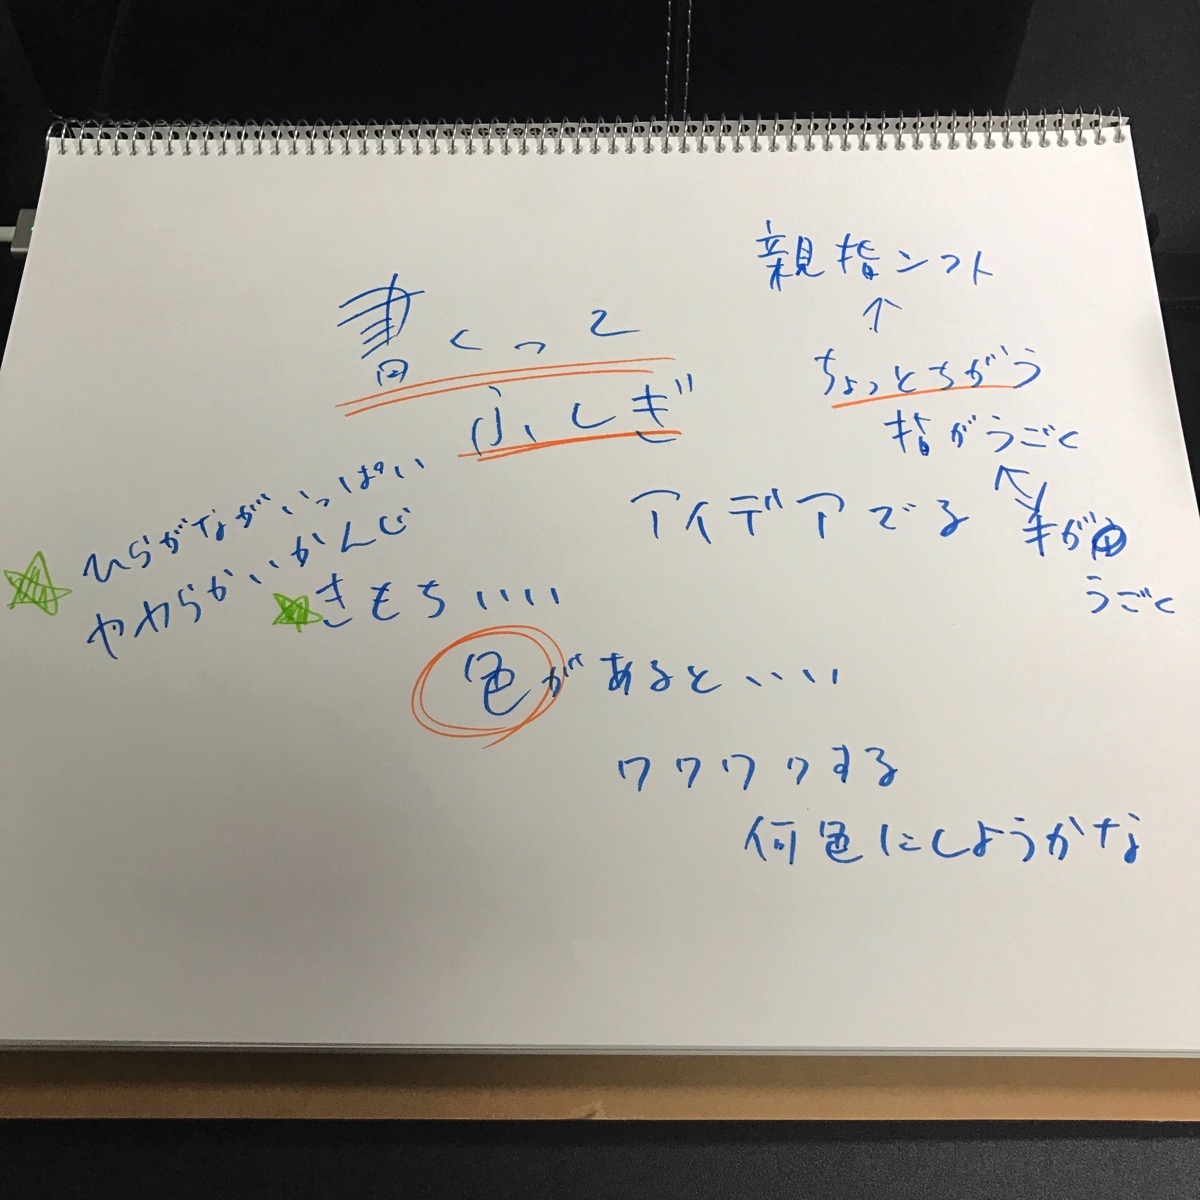 書くって
ふしぎ
親指シフト
↑
ちょっとちがう
指がうごく
手が
うごく
アイデアでる
ひらがながいっぱい
やわらかいかんじ
きもちいい
色があるといい
ワクワクする
何色にしようかな